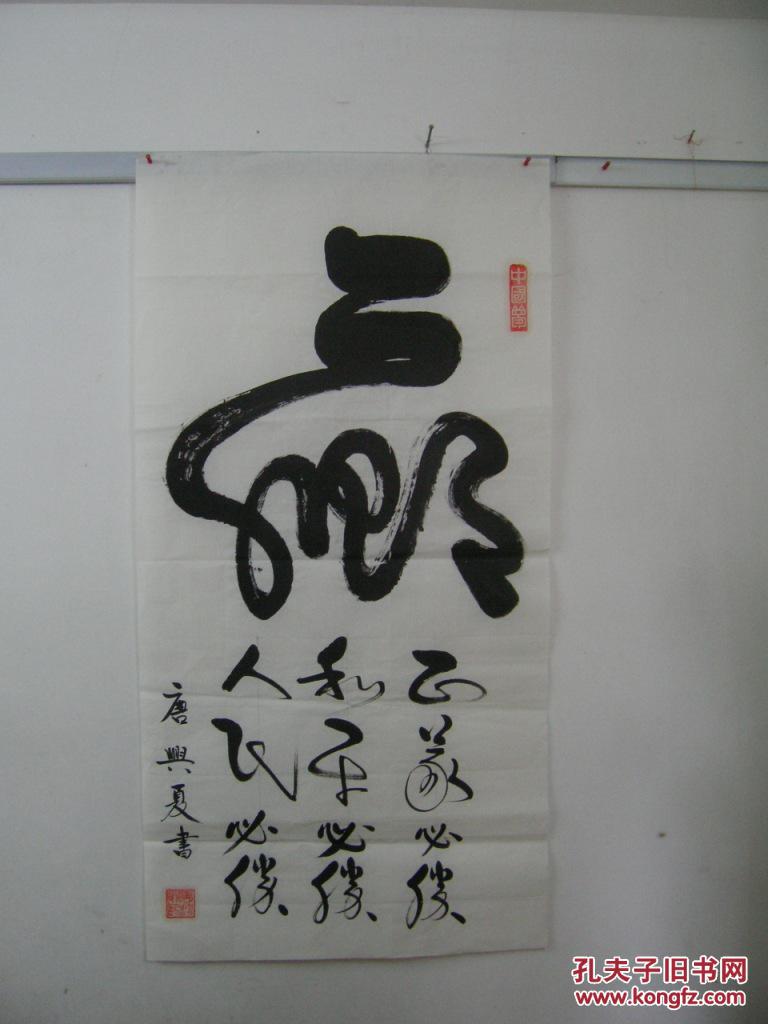 赢
中國夢
正義必勝
和平必勝
人民必勝
唐興夏書
孔夫子旧书网
www.kongfz.com